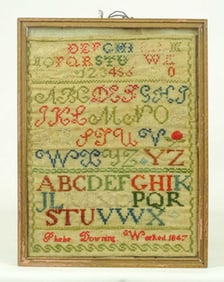 DEFGHI
OPQRSTU W
123456 0
ABCDEFGHI
JKLMNO
STU V
WXYZ YZ
ABCDEFGHIK
JL PQR
STUVWX
Phebe Downing. Worked 1847